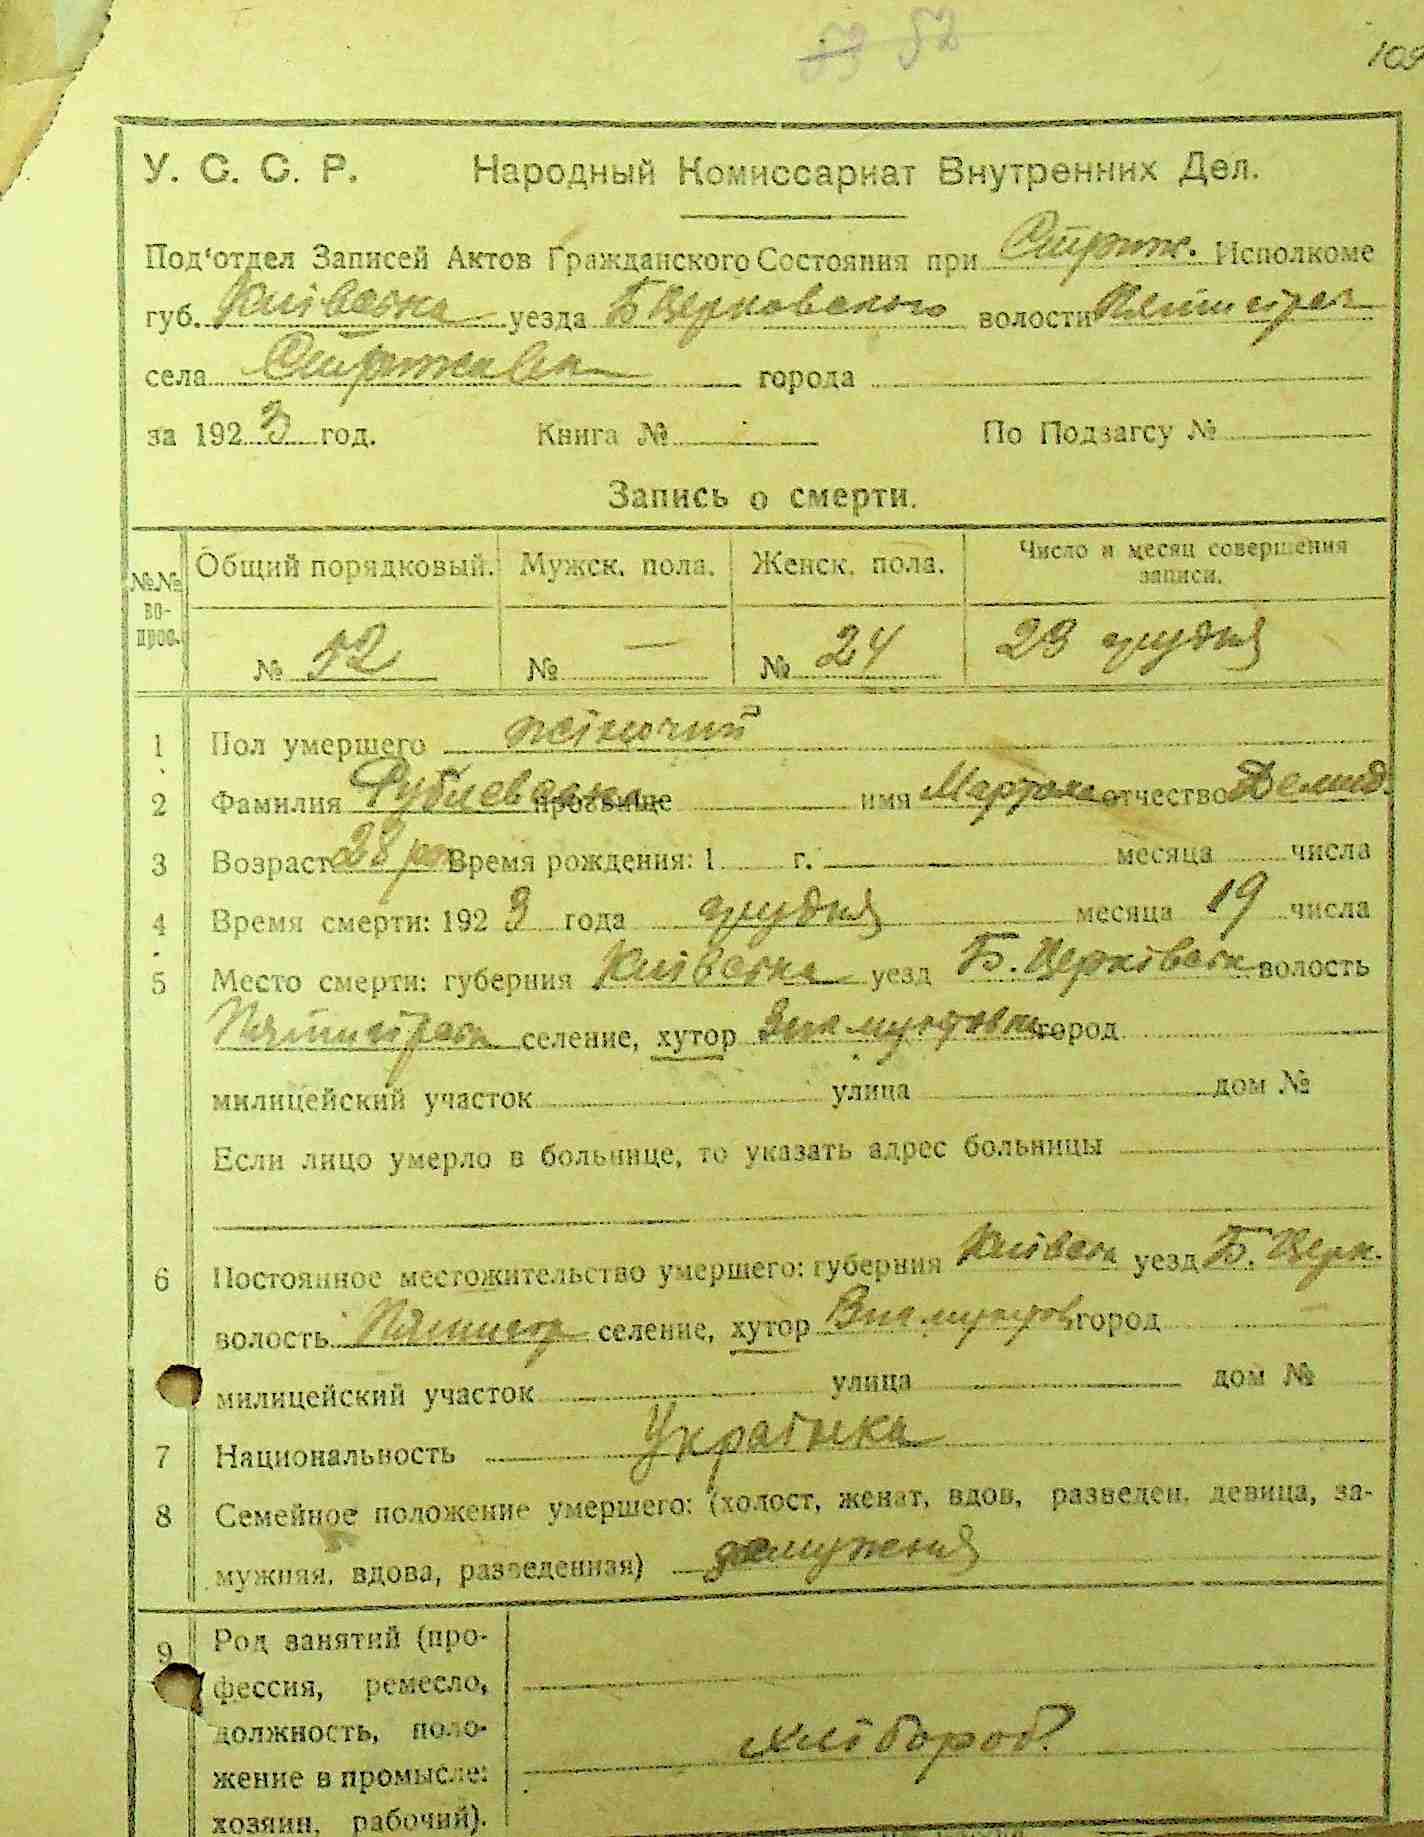 53 52
109
У. С. С. Р. Народный Комиссариат Внутренних Дел.
Под'отдел Записей Актов Гражданского Состояния при Стриж. Исполкоме
губ. Київська уезда Б Церковского волости Пятигор
села Стрижавка города
за 1923 год. Книга № По Подзагсу №
Запись о смерти.
№№ во- прос. Общий порядковый. Мужск. пола. Женск. пола. Число и месяц совершения записи.
№ 52 № — № 24 23 грудня
1 Пол умершего жіночий
2 Фамилия прозвище имя отчество Демид.
3 Возраст 28 рок Время рождения: 1 г. месяца числа
4 Время смерти: 1923 года грудня месяца 19 числа
5 Место смерти: губерния Київська уезд Б. Церківськ волость
Пятигорськ селение, хутор город
милицейский участок улица дом №
Если лицо умерло в больнице, то указать адрес больницы
6 Постоянное местожительство умершего: губерния Київськ уезд Б. Церк.
волость Пятигор селение, хутор город —
милицейский участок улица дом №
7 Национальность Українка
8 Семейное положение умершего: (холост, женат, вдов, разведен, девица, за-
мужняя, вдова, разведенная) замужня
9 Род занятий (про-
фессия, ремесло,
должность, поло-
жение в промысле: хлібороб
хозяин, рабочий).